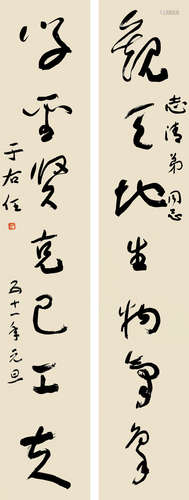 觀天地生物氣象
學聖賢克己工夫
志清弟同志
于右任
五十一年元旦